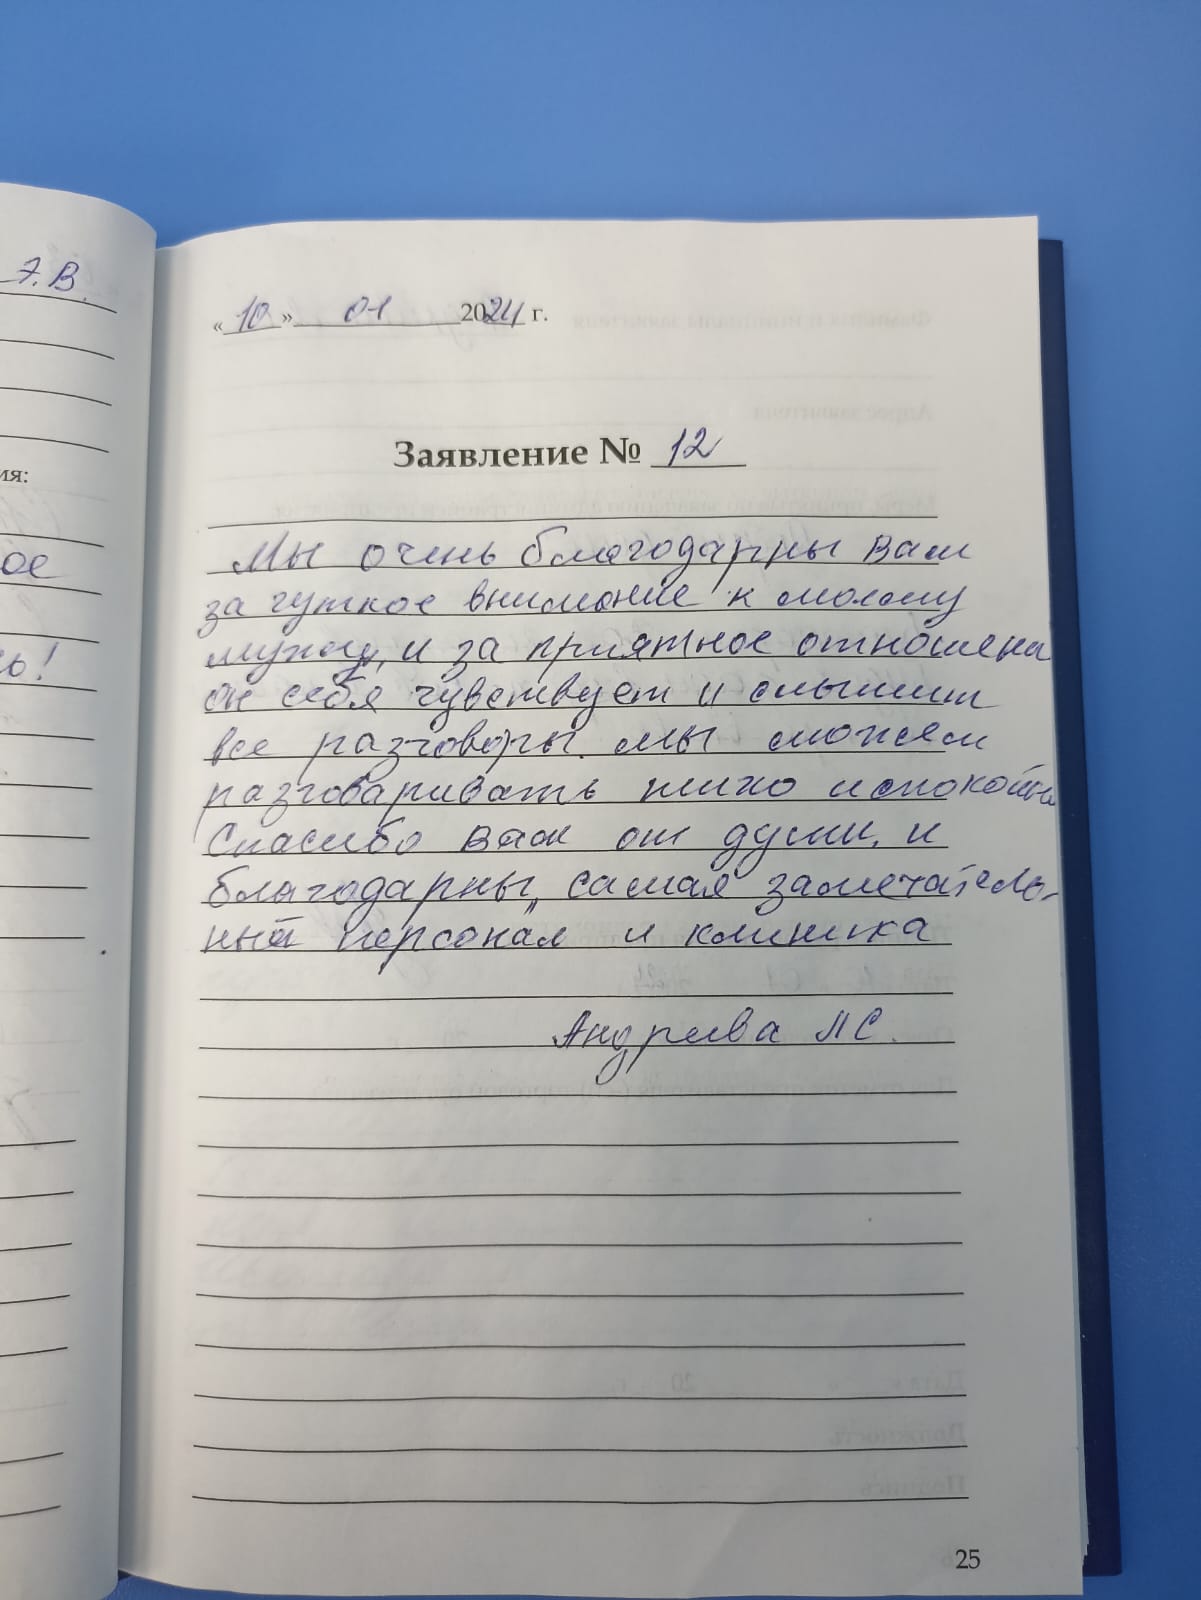 Э.В.
ия:
ое
ь!
« 10 » 01 2024 г.
Заявление № 12
Мы очень благодарны Вам
за чуткое внимание к моему
мужу, и за приятное отношена
он себя чувствует и слышит
все разговоры. мы можем
разговаривать тихо и спокойно
Спасибо вам от души, и
благодарны, самая замечатель-
ный персонал и клиника
Андреева Л С.
25